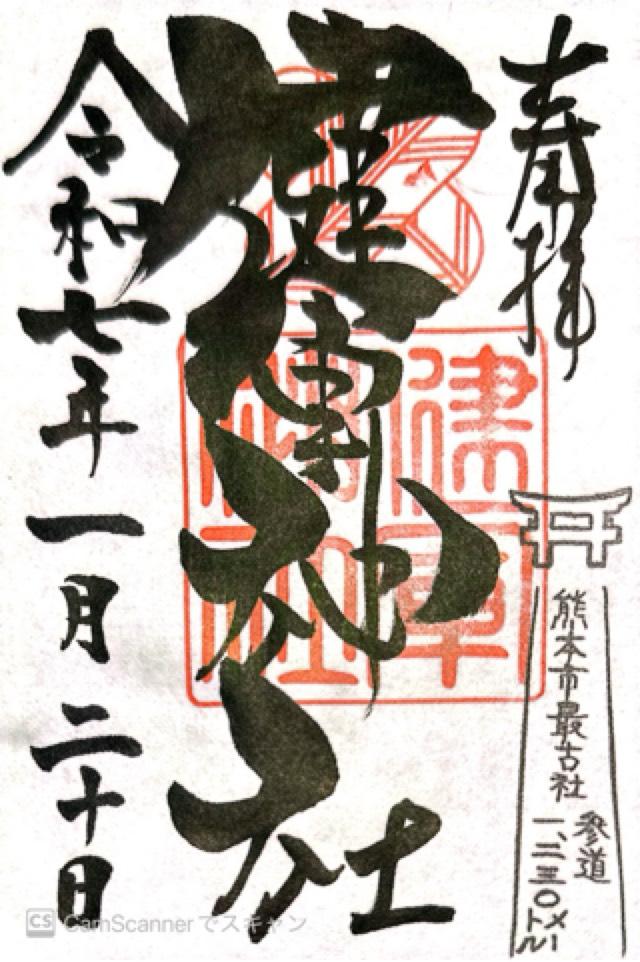 奉拝
健軍神社
令和七年一月二十日
熊本市最古社
参道
一、二三〇メートル
CS CamScannerでスキャン